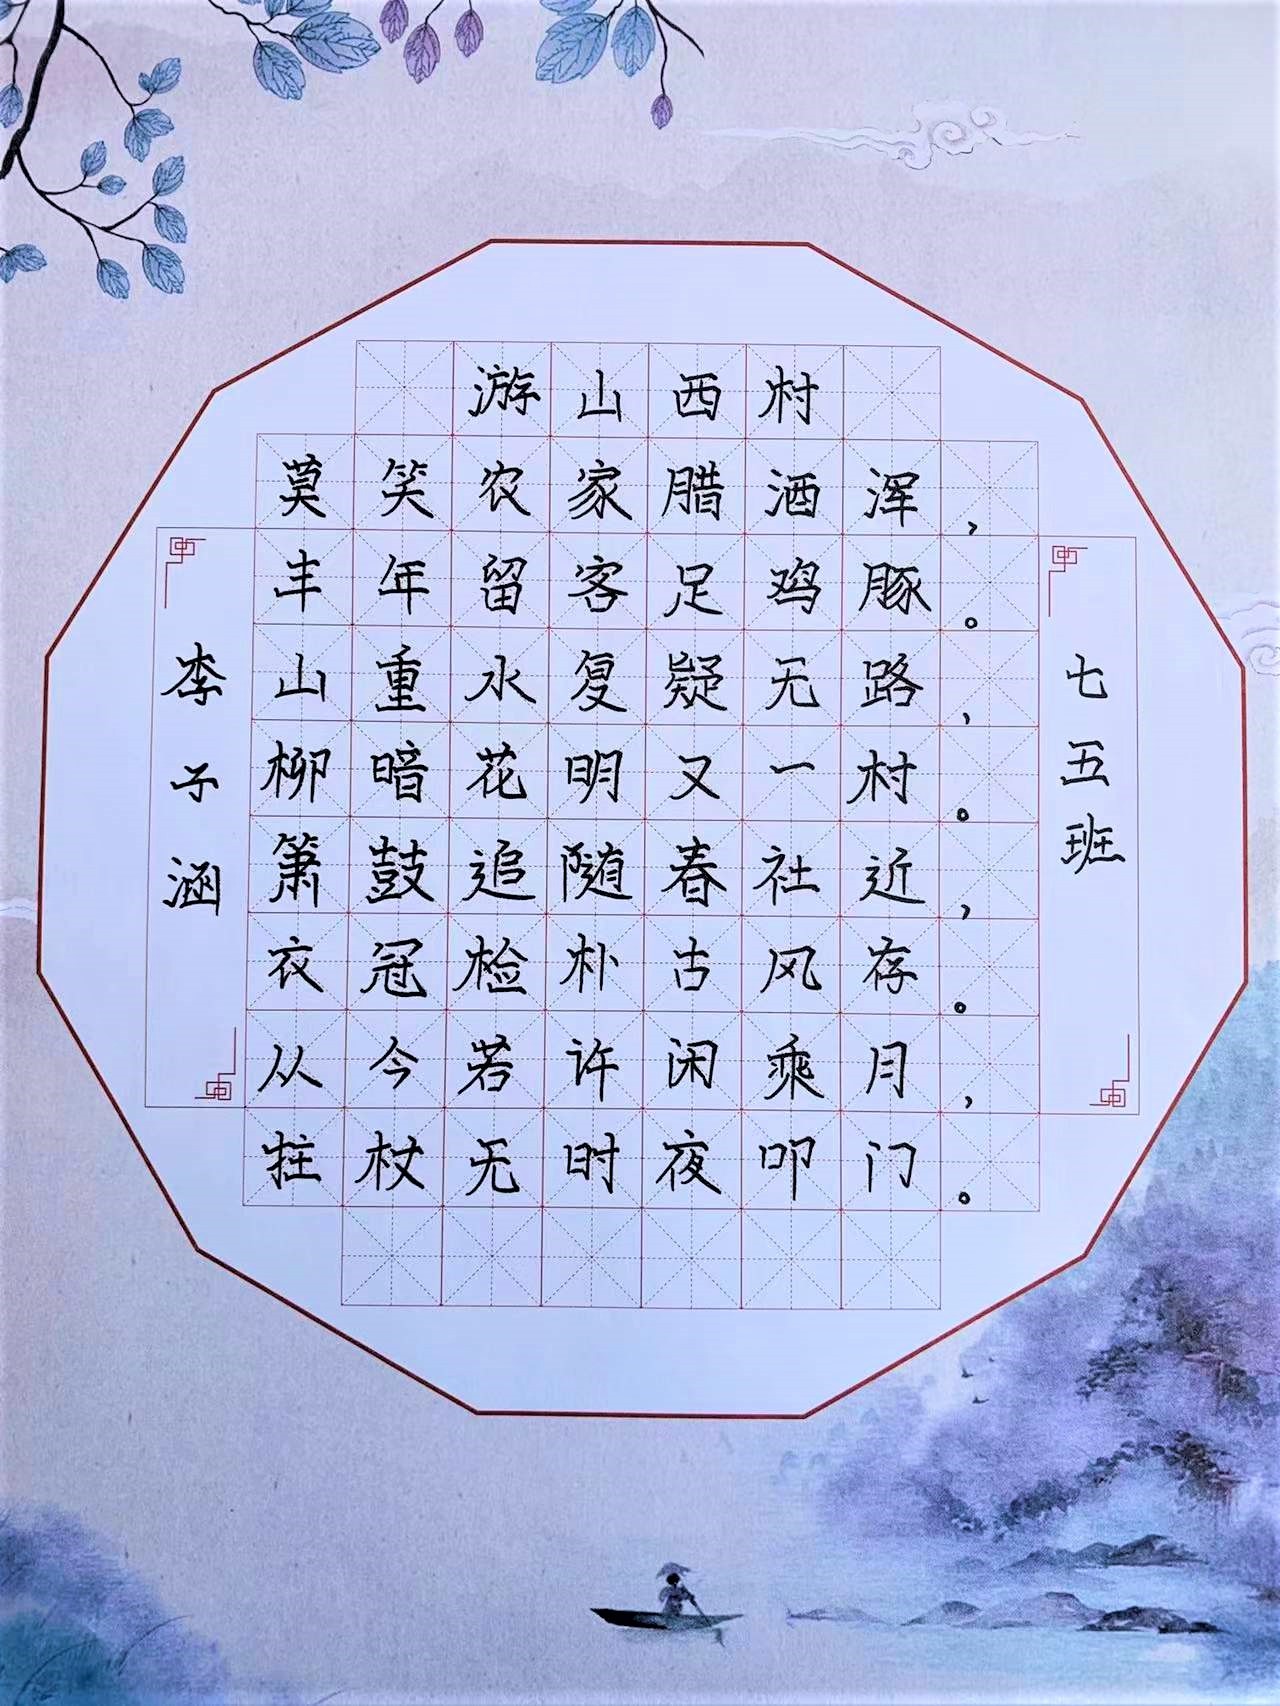 游山西村
莫笑农家腊酒浑，
丰年留客足鸡豚。
山重水复疑无路，
柳暗花明又一村。
箫鼓追随春社近，
衣冠检朴古风存。
从今若许闲乘月，
拄杖无时夜叩门。
七五班
李子涵